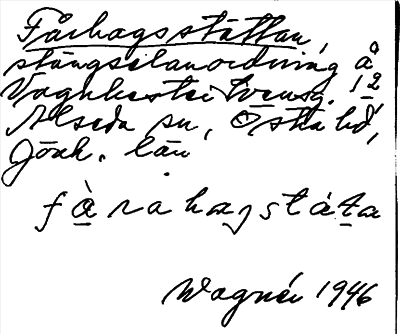 Fårhagsstättan,
stängselanordning å
Vaghustei tvensg. 12,
Alseda sn, Östra hd,
Jönk. län
fàrahagstáta
Wagnér 1946